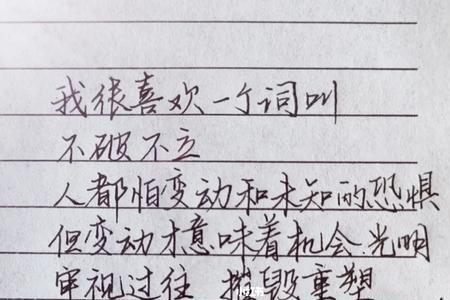 我很喜欢一个词叫
不破不立
人都怕变动和未知的恐惧
但变动才意味着机会.光明
审视过往 摧毁重塑